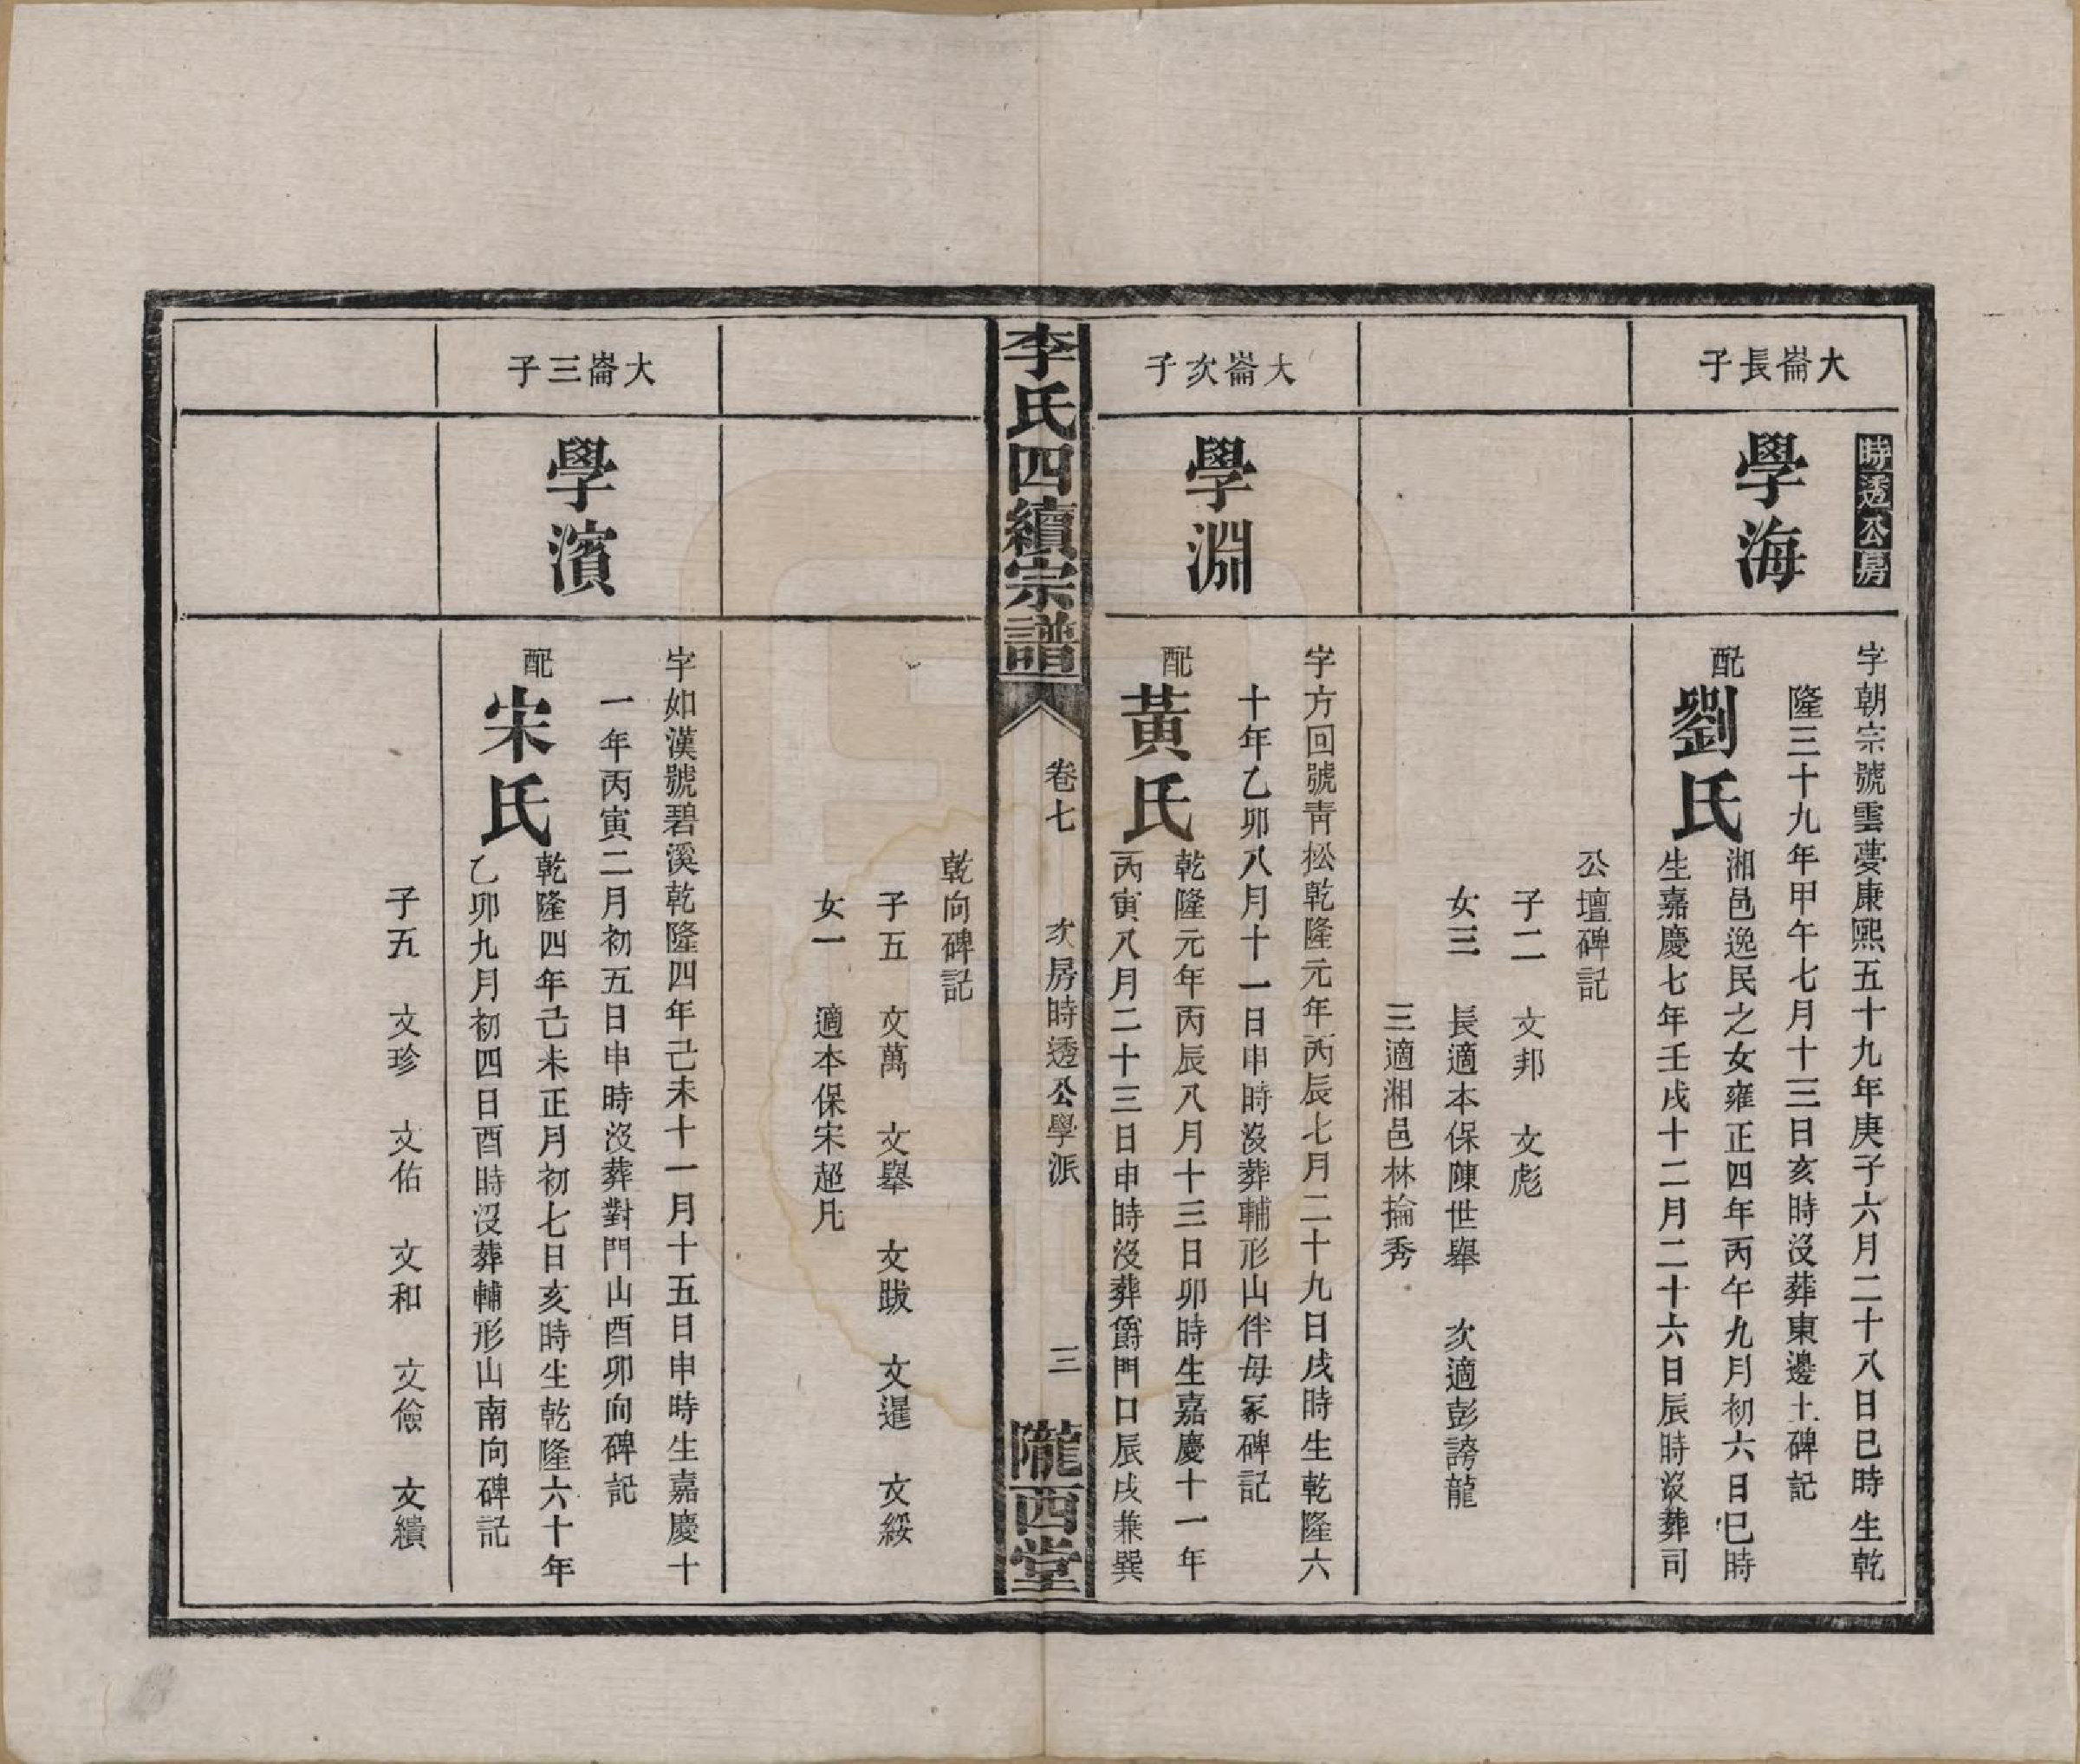 大崙長子
時透公房
學海
字朝宗號雲夢康熙五十九年庚子六月二十八日巳時生乾
隆三十九年甲午七月十三日亥時沒葬東邊土碑記
配
劉氏
湘邑逸民之女雍正四年丙午九月初六日巳時
生嘉慶七年壬戌十二月二十六日辰時沒葬司
公壇碑記
子二　文邦　文彪
女三　長適本保陳世舉　次適彭誇龍
三適湘邑林掄秀
大崙次子
學淵
字方回號青松乾隆元年丙辰七月二十九日戌時生乾隆六
十年乙卯八月十一日申時沒葬輔形山伴母冢碑記
配
黃氏
乾隆元年丙辰八月十三日卯時生嘉慶十一年
丙寅八月二十三日申時沒葬爵門口辰戌兼巽
李氏四續宗譜
卷七　次房時透公學派　三
隴西堂
乾向碑記
子五　文萬　文舉　文跋　文暹　文綏
女一　適本保宋超凡
大崙三子
學濱
字如漢號碧溪乾隆四年己未十一月十五日申時生嘉慶十
一年丙寅二月初五日申時沒葬對門山酉卯向碑記
配
宋氏
乾隆四年己未正月初七日亥時生乾隆六十年
乙卯九月初四日酉時沒葬輔形山南向碑記
子五　文珍　文佑　文和　文儉　文繢